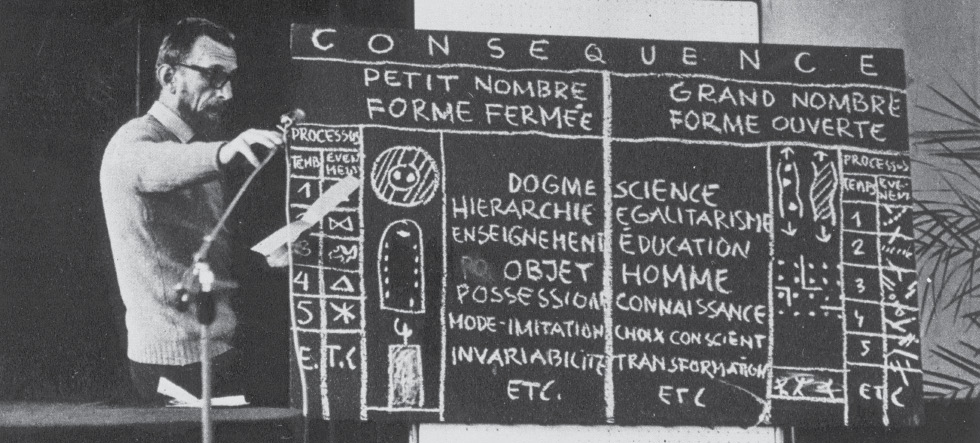 CONSEQUENCE
PETIT NOMBRE
FORME FERMÉE
GRAND NOMBRE
FORME OUVERTE
PROCESSUS
TEMP EVEN
MENT
1
3
4
5
E. T.C
DOGME
HIERARCHIE
ENSEIGNEMENT
OBJET
POSSESSION
MODE-IMITATION
INVARIABILITE
ETC.
SCIENCE
EGALITARISME
ÉDUCATION
HOMME
CONNAISSANCE
CHOIX CONSCIENT
TRANSFORMATION
ETC
PROCESSUS
TEMPS EVE-
NEMENT
1
2
3
4
5
ETC